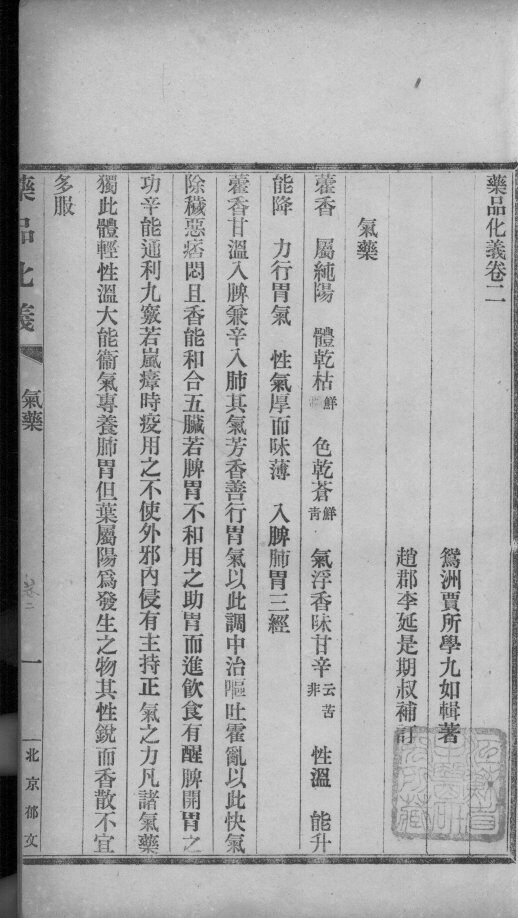 藥品化義卷二
鴛洲賈所學九如輯著
趙郡李延是期叔補訂
氣藥
藿香　屬純陽　體乾枯鮮　色乾蒼鮮青　氣浮香味甘辛云苦非　性溫　能升
能降　力行胃氣　性氣厚而味薄　入脾肺胃三經
藿香甘溫入脾兼辛入肺其氣芳香善行胃氣以此調中治嘔吐霍亂以此快氣
除穢惡痞悶且香能和合五臟若脾胃不和用之助胃而進飲食有醒脾開胃之
功辛能通利九竅若嵐瘴時疫用之不使外邪內侵有主持正氣之力凡諸氣藥
獨此體輕性溫大能衞氣專養肺胃但葉屬陽爲發生之物其性銳而香散不宜
多服
藥品化義
氣藥
卷二
一
北京郁文